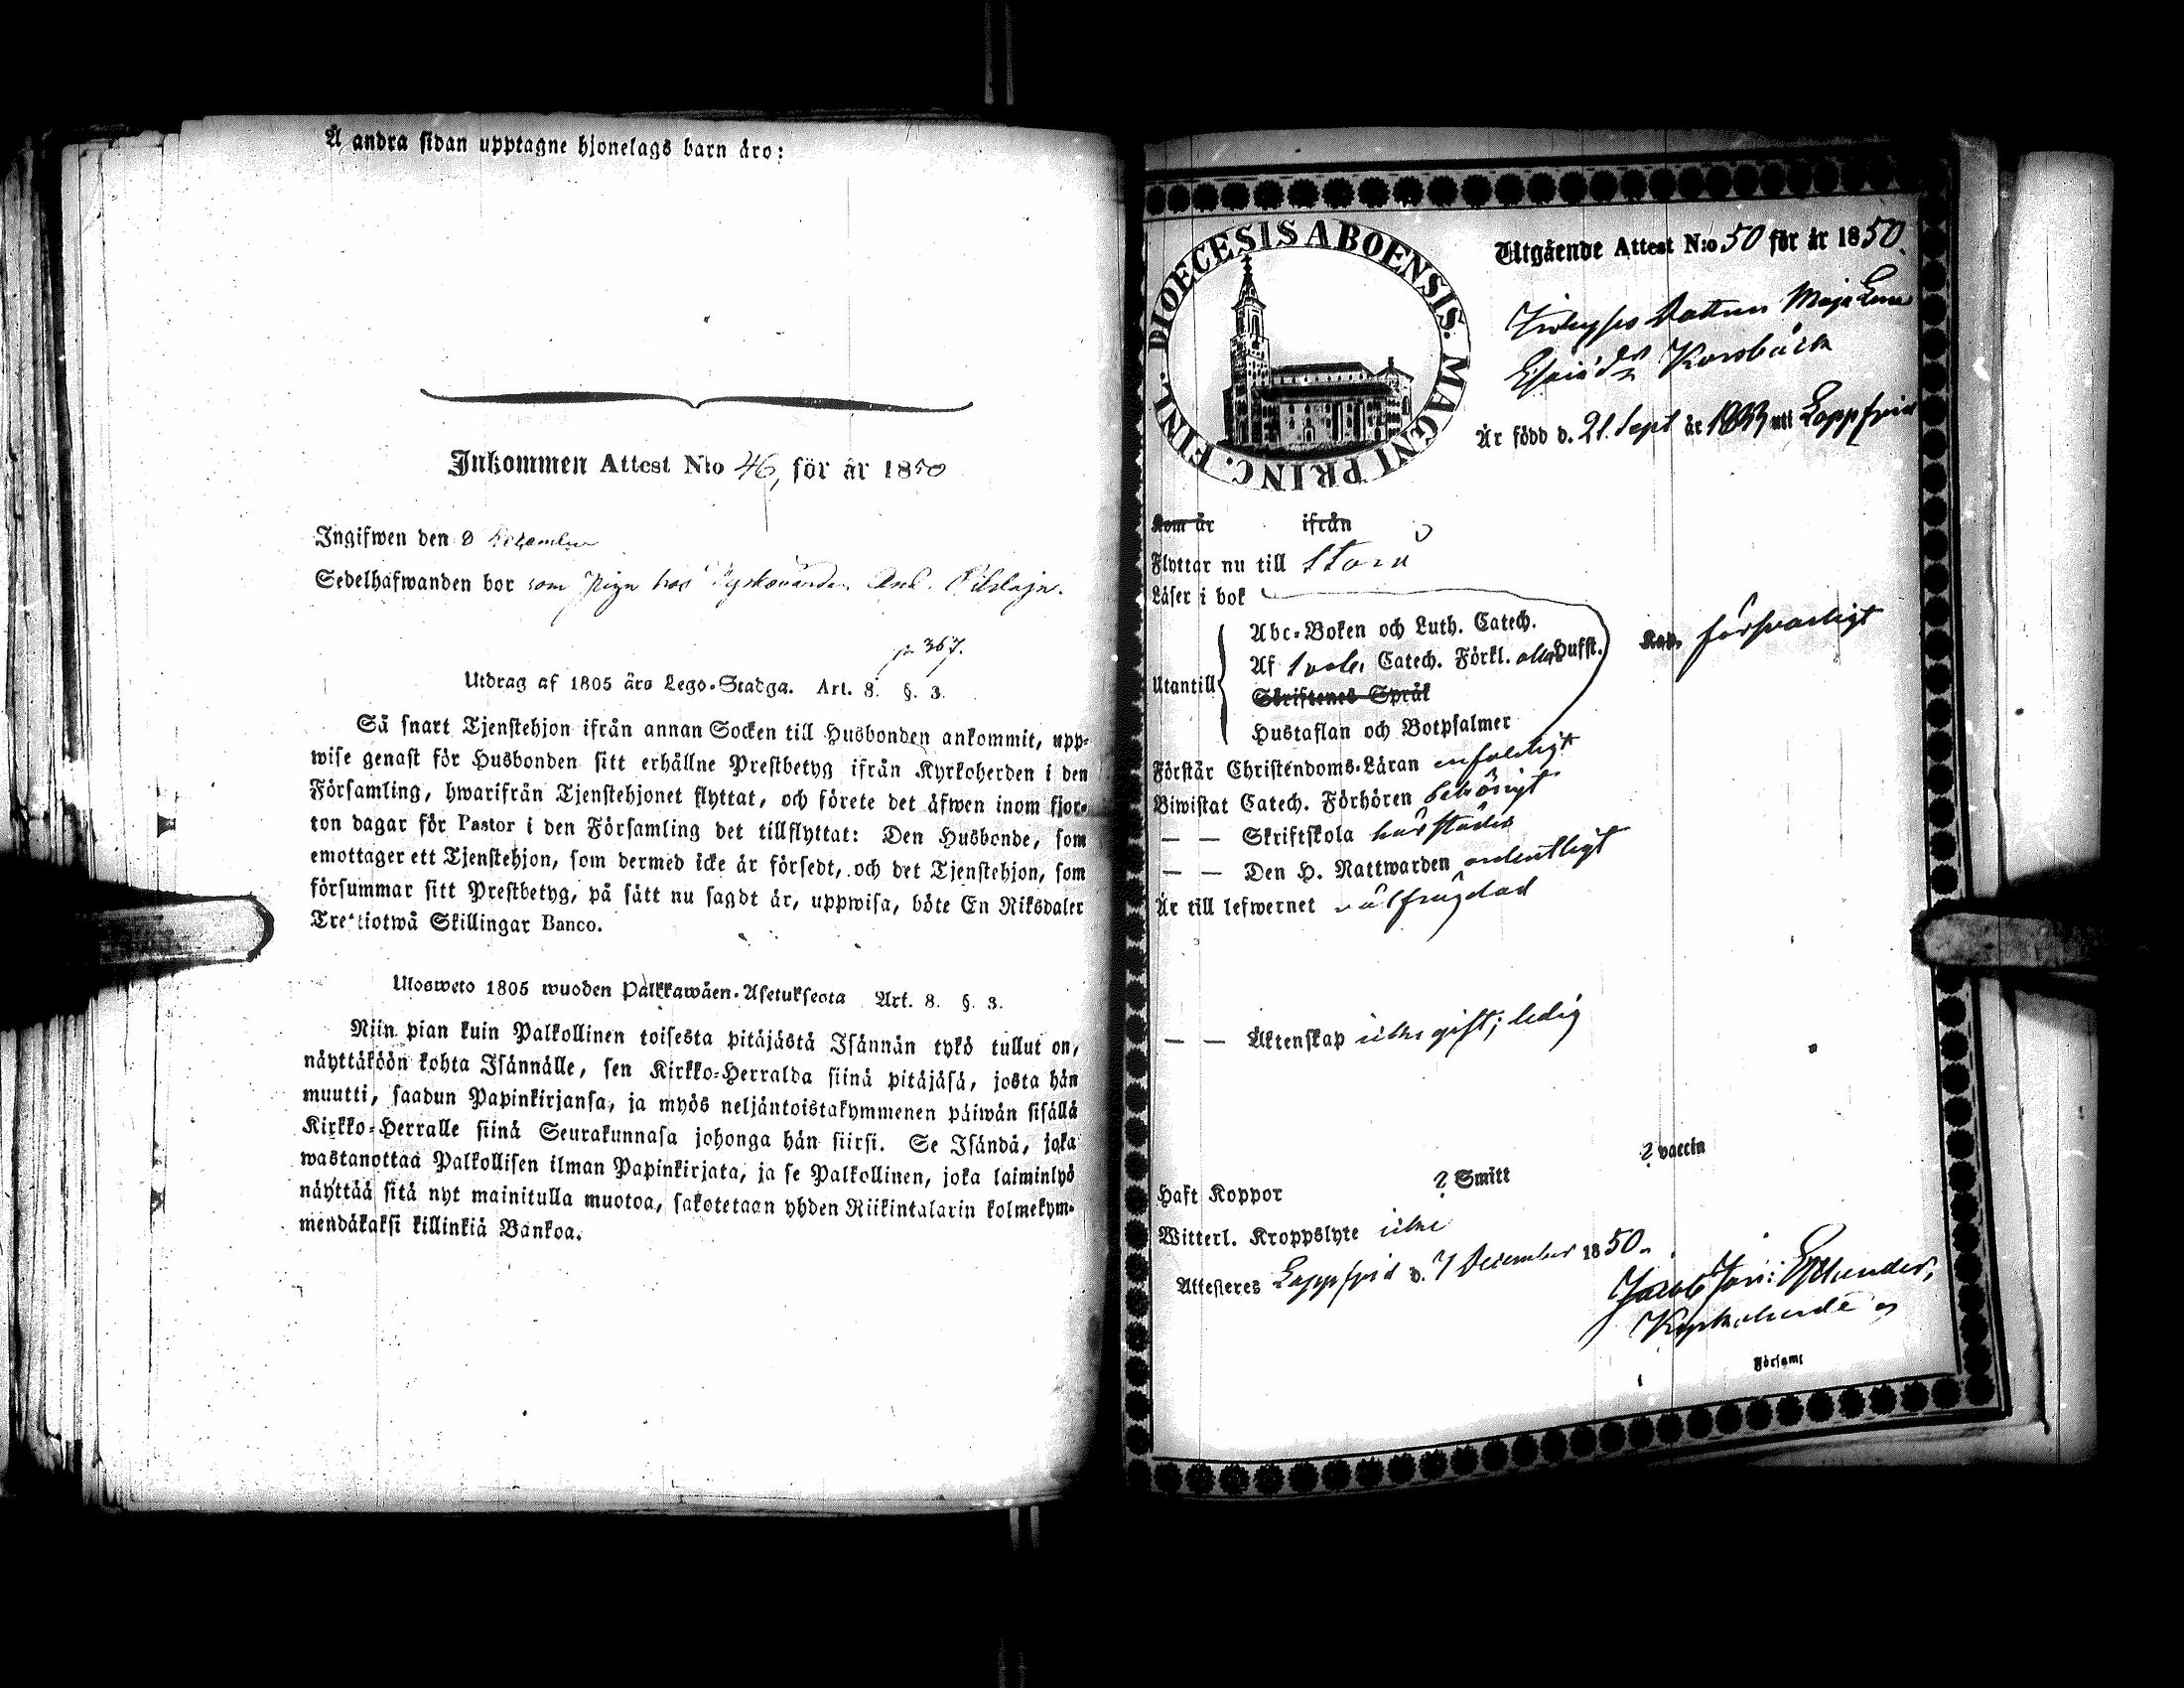 Å andra sidan upptagne hjonelags barn äro:
Inkommen Attest N:o 46, för år 1850
Ingifwen den 9 December
Sedelhafwanden bor som Piga hos
p. 367.
Utdrag af 1805 års Lego-Stadga. Art. 8. §. 3.
Så snart Tjenstehjon ifrån annan Socken till Husbonden ankommit, upp-
wise genast för Husbonden sitt erhållne Prestbetyg ifrån Kyrkoherden i den
Församling, hwarifrån Tjenstehjonet flyttat, och förete det äfwen inom fjor-
ton dagar för Pastor i den Församling det tillflyttat: Den Husbonde, som
emottager ett Tjenstehjon, som dermed icke är försedt, och det Tjenstehjon, som
försummar sitt Prestbetyg, på sätt nu sagdt är, uppwisa, böte En Riksdaler
Trettiotwå Skillingar Banco.
Ulosweto 1805 wuoden Palkkawäen-Asetuksesta Art. 8. §. 3.
Niin pian kuin Palkollinen toisesta pitäjästä Isännän tykö tullut on,
näyttäköön kohta Isännälle, sen Kirkko-Herralda siinä pitäjäsä, josta hän
muutti, saadun Papinkirjansa, ja myös neljäntoistakymmenen päiwän sisällä
Kirkko-Herralle siinä Seurakunnasa johonga hän siirsi. Se Isändä, joka
wastanottaa Palkollisen ilman Papinkirjata, ja se Palkollinen, joka laiminlyö
näyttää sitä nyt mainitulla muotoa, sakotetaan yhden Riikintalarin kolmekym-
mendäkaksi killinkiä Bankoa.
DIOECESIS ABOENSIS. MAGNI PRINC. FINL.
Utgående Attest N:o 50 för år 1850.
Maja Lena
Esaiädr Korsbäck
Är född d. 21. Sept år 1833 uti Lappfjerd
Kom år ifrån
Flyttar nu till
Läser i bok
Abc-Boken och Luth. Catech.
Af Svebe. Catech. Förkl. alla Hufst. Kap. försvarligt
Utantill
Skriftenes Språk
Hustaflan och Botpsalmer
Förstår Christendoms-Läran enfaldigt
Biwistat Catech. Förhören behörigt
— — Skriftskola härstädes
— — Den H. Nattwarden ordentligt
Är till lefwernet välfrägdad
— — Äktenskap icke gift; ledig
Haft Koppor ? Smitt ? vaccin
Witterl. Kroppslyte icke
Attesteres Lappfjerd d. 7 December 1850.
Jacob Joh:
Kyrkoherde
Församl